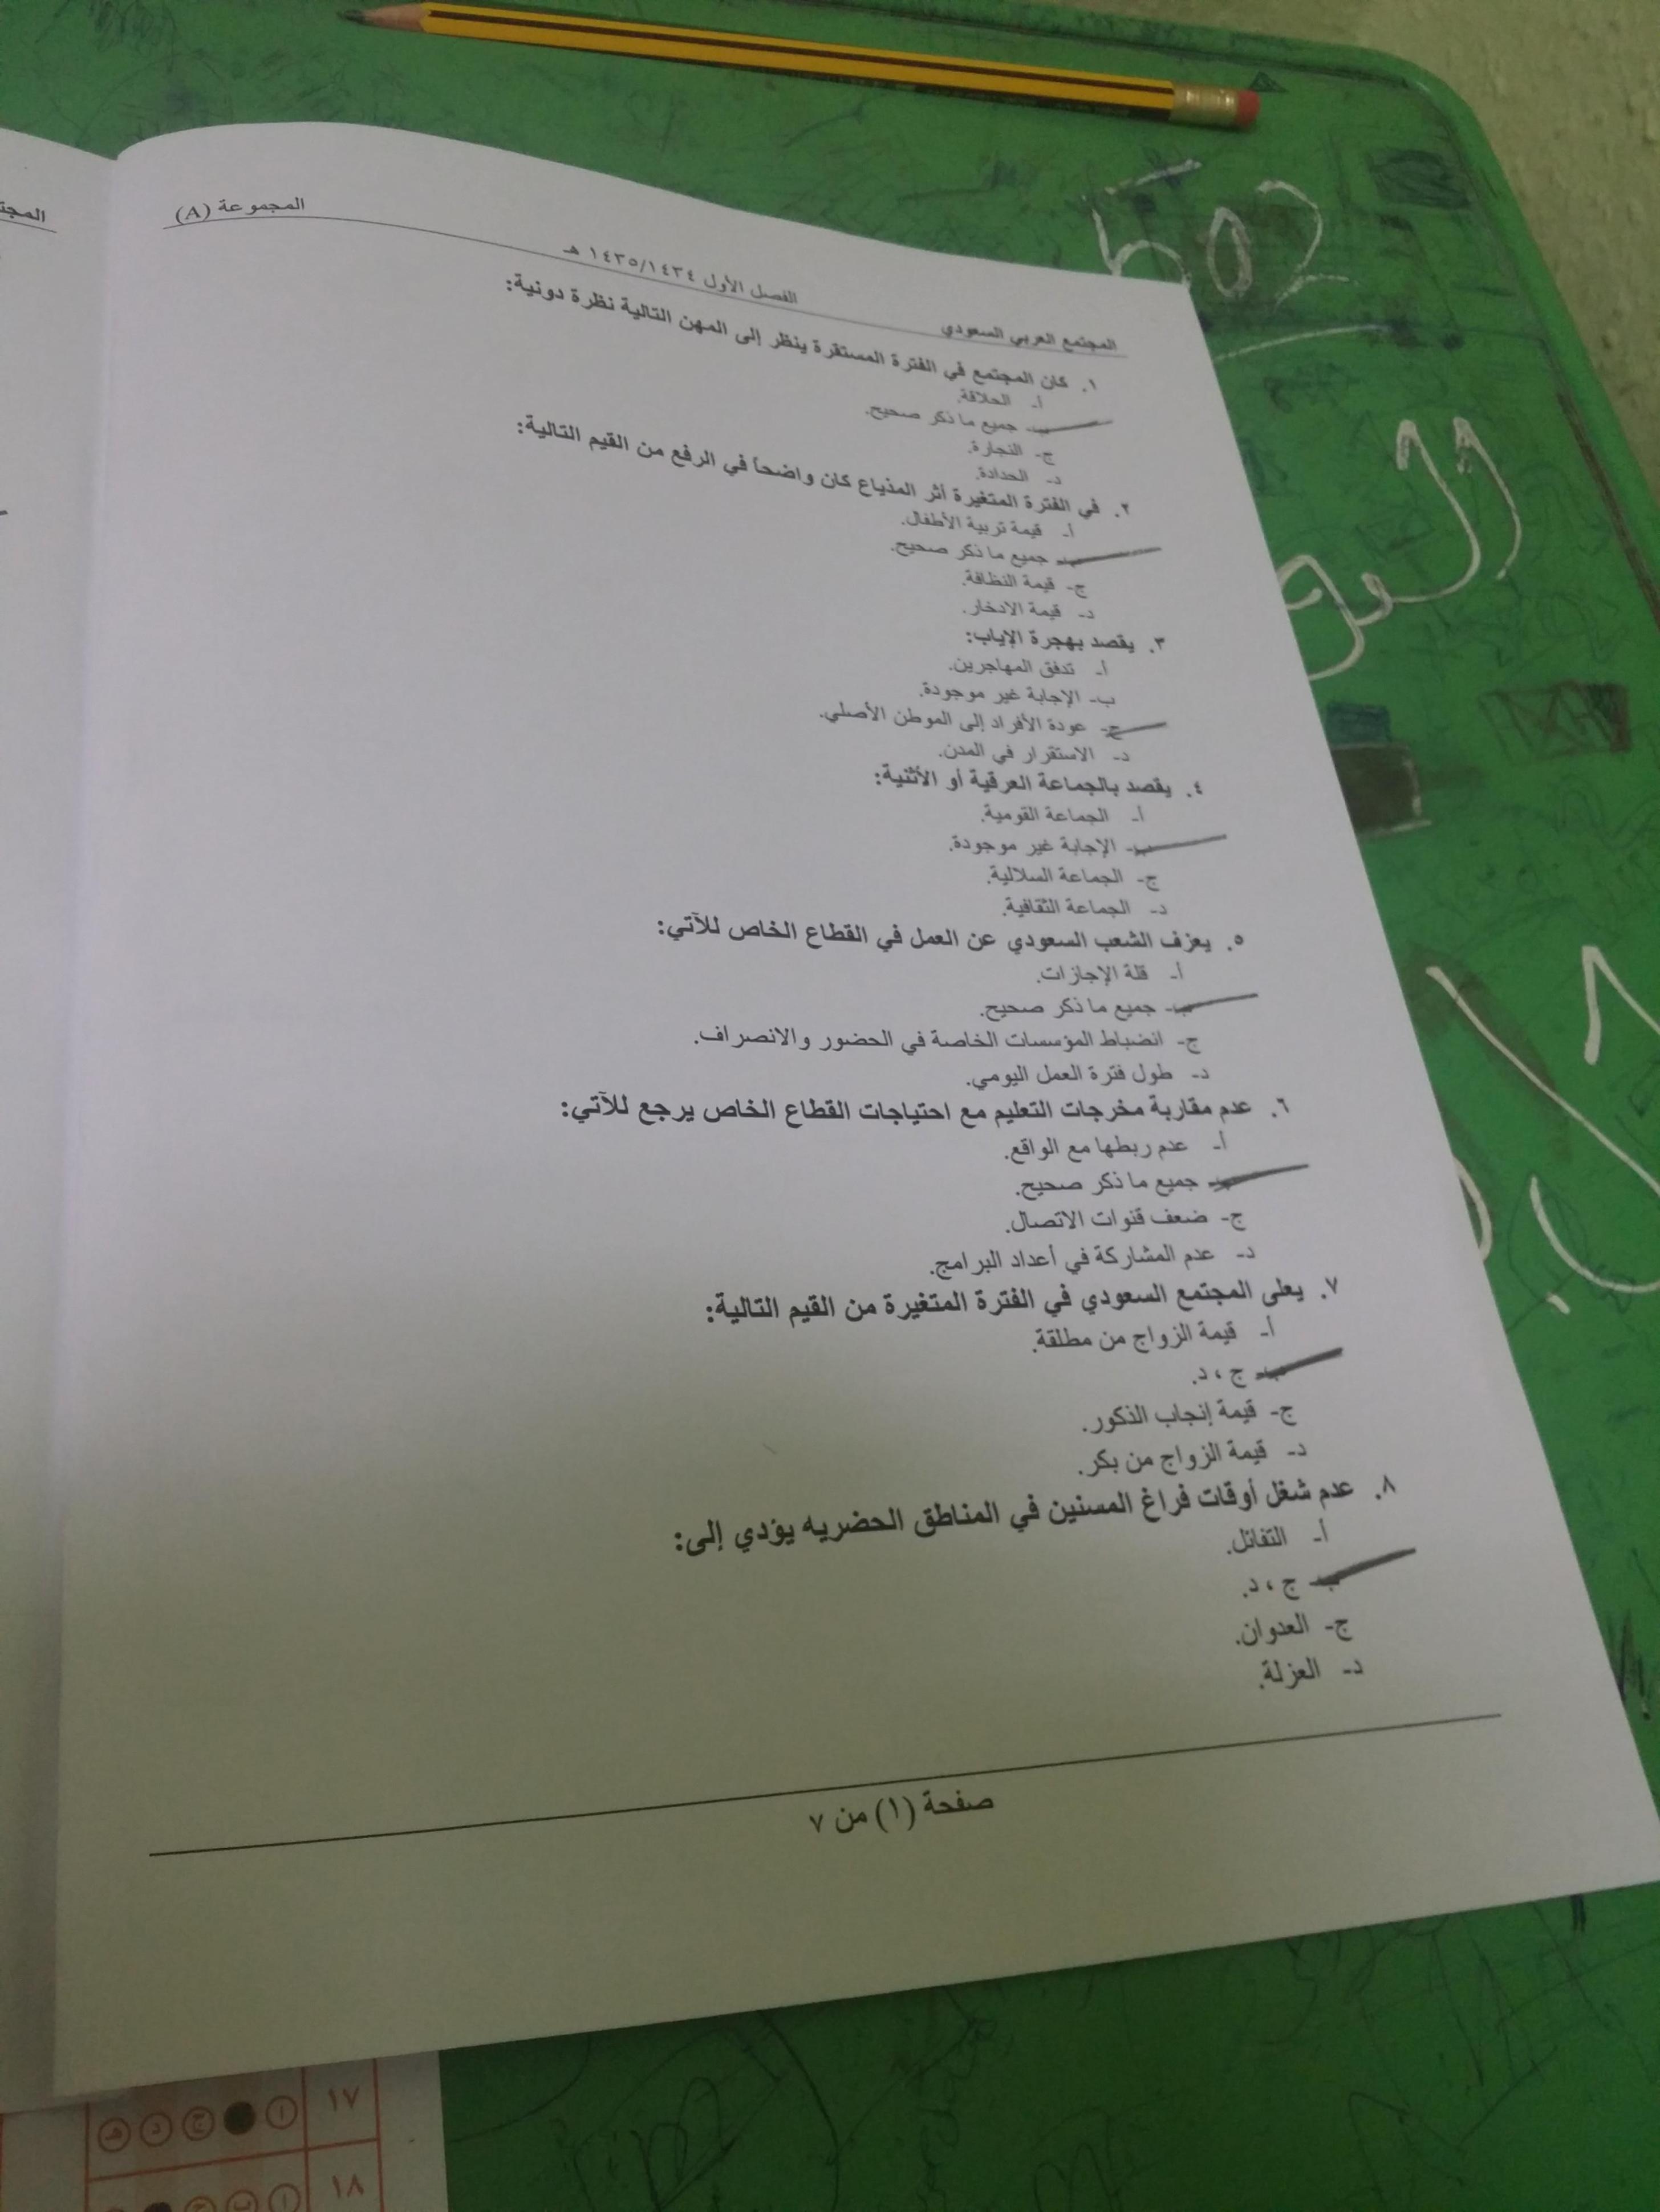 المجتمع العربي السعودي
الفصل الأول ١٤٣٥/١٤٣٤ هـ
المجموعة (A)
١. كان المجتمع في الفترة المستقرة ينظر إلى المهن التالية نظرة دونية:
أ- الحلاقة.
ب- جميع ما ذكر صحيح.
ج- النجارة.
د- الحدادة.
٢. في الفترة المتغيرة أثر المذياع كان واضحاً في الرفع من القيم التالية:
أ- قيمة تربية الأطفال.
ب- جميع ما ذكر صحيح.
ج- قيمة النظافة.
د- قيمة الادخار.
٣. يقصد بهجرة الإياب:
أ- تدفق المهاجرين.
ب- الإجابة غير موجودة.
ج- عودة الأفراد إلى الموطن الأصلي.
د- الاستقرار في المدن.
٤. يقصد بالجماعة العرقية أو الأثنية:
أ- الجماعة القومية.
ب- الإجابة غير موجودة.
ج- الجماعة السلالية.
د- الجماعة الثقافية.
٥. يعزف الشعب السعودي عن العمل في القطاع الخاص للآتي:
أ- قلة الإجازات.
ب- جميع ما ذكر صحيح.
ج- انضباط المؤسسات الخاصة في الحضور والانصراف.
د- طول فترة العمل اليومي.
٦. عدم مقاربة مخرجات التعليم مع احتياجات القطاع الخاص يرجع للآتي:
أ- عدم ربطها مع الواقع.
ب- جميع ما ذكر صحيح.
ج- ضعف قنوات الاتصال.
د- عدم المشاركة في أعداد البرامج.
٧. يعلى المجتمع السعودي في الفترة المتغيرة من القيم التالية:
أ- قيمة الزواج من مطلقة.
ب- ج ، د.
ج- قيمة إنجاب الذكور.
د- قيمة الزواج من بكر.
٨. عدم شغل أوقات فراغ المسنين في المناطق الحضريه يؤدي إلى:
أ- التفائل.
ب- ج ، د.
ج- العدوان.
د- العزلة.
صفحة (١) من ٧
١٧ ا ج د هـ
١٨ ا ب ج
502